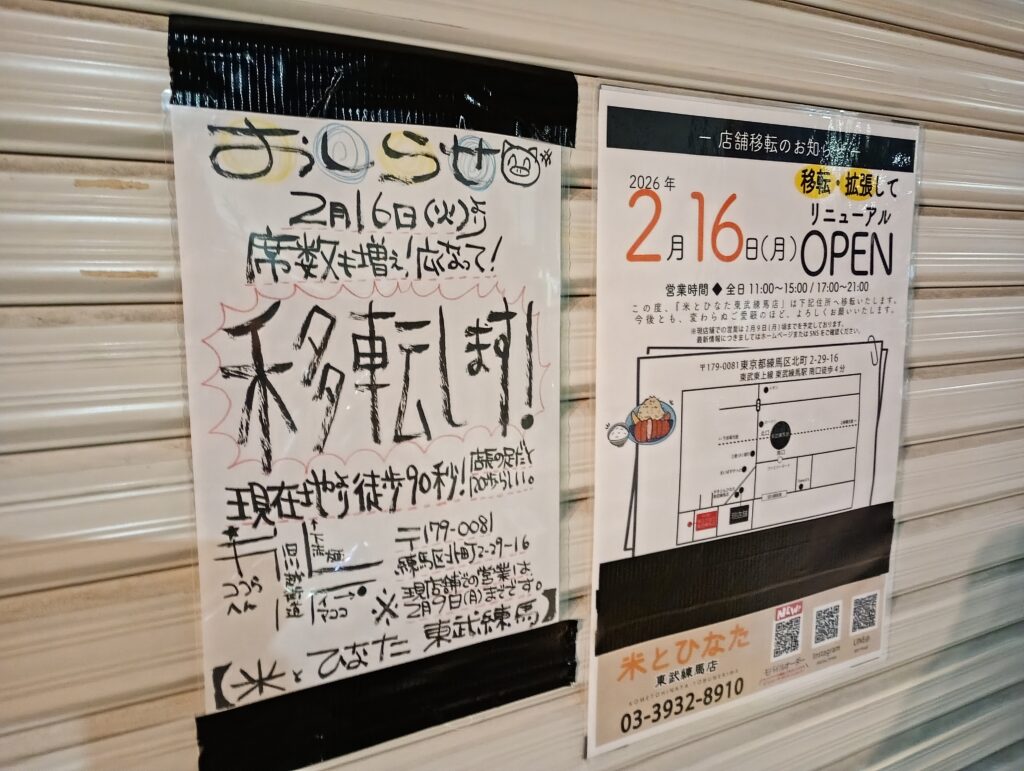 おしらせ
2月16日(火)より
席数も増え!広なって!
移転します!
現在地より徒歩90秒!
店長の足だと
120歩らしい。
〒179-0081
練馬区北町2-29-16
現店舗での営業は、
※2月9日(月)までです。
川越街道
ココから
ココ
米とひなた 東武練馬
― 店舗移転のお知らせ ―
2026年
2月16日(月)
移転・拡張して
リニューアル
OPEN
営業時間 ◆ 全日 11:00~15:00 / 17:00~21:00
この度、「米とひなた東武練馬店」は下記住所へ移転いたします。
今後とも、変わらぬご愛顧のほど、よろしくお願いいたします。
※現店舗での営業は2月9日(月)頃までを予定しております。
最新情報につきましてはホームページまたはSNSをご確認ください。
〒179-0081東京都練馬区北町 2-29-16
東武東上線 東武練馬駅 南口徒歩4分
北口
南口
米とひなた
東武練馬店
KOMETOHINATA TOBUNERIMA
03-3932-8910
NEW
モバイルオーダー
Instagram
LINE@